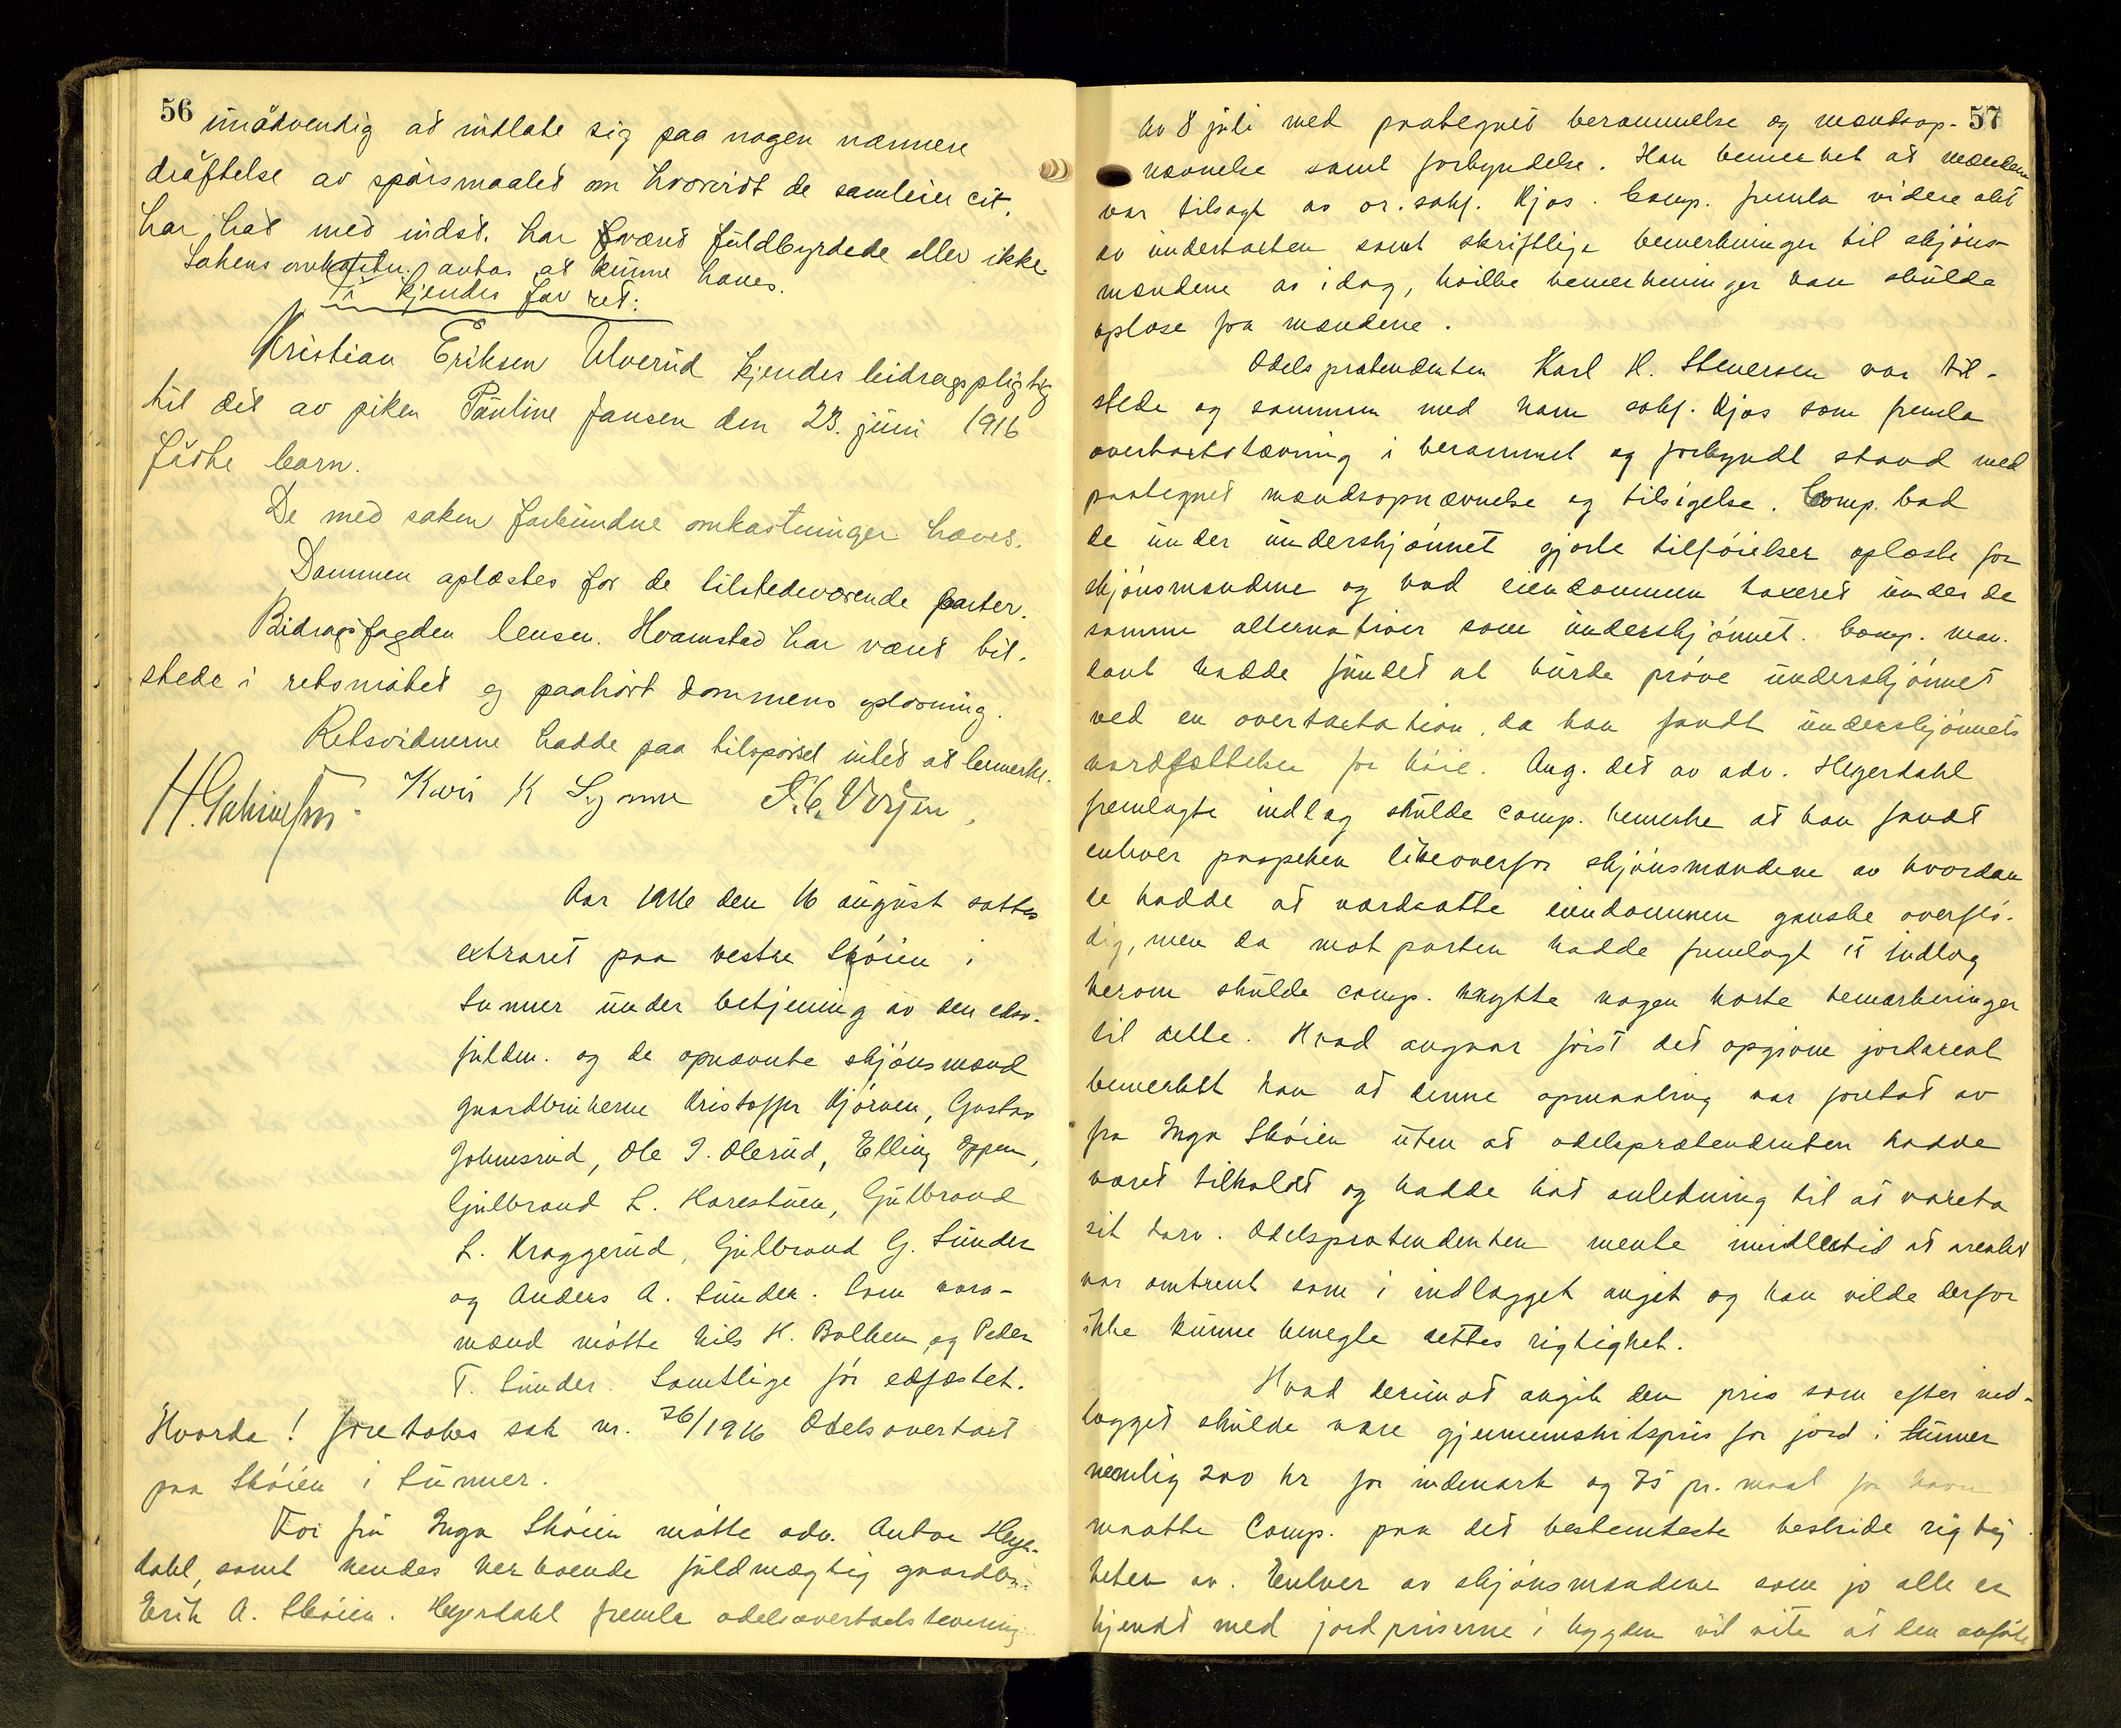 56
unødvendig at indlate sig paa nogen nærmere
drøftelse av spørsmaalet om hvorvidt de samleier cit.
har hat med indst. har været fuldbyrdede eller ikke.
Sakens omkostn. antas at kunne hæves.
Ti kjendes for ret:
Kristian Eriksen Ulverud kjendes bidragspligtig
til det av piken Pauline Jansen den 23. juni 1916
fødte barn.
De med saken forbundne omkostninger hæves.
Dommen oplæstes for de tilstedeværende parter.
Bidragsfogden lensm. Hvamstad har været til-
stede i retsmøtet og paahørt dommens oplæsning.
Retsvidnerne hadde paa tilspørsel intet at bemerke.
Aar 1916 den 16 august sattes
extraret paa vestre Skøien i
Lunner under betjening av den edsv.
fuldm. og de opnævnte skjønsmænd
gaardbrukerne Kristoffer Kjørven, Gustav
Johnsrud, Ole I. Olerud, Elling Eppen,
Gulbrand L. Harestuen, Gulbrand
L. Kraggerud, Gulbrand G. Sunder
og Anders A. Sunder. Som vara-
mænd møtte Nils H. Bolken og Peder
T. Sunder. Samtlige før edfæstet.
Hvorda! foretokes sak nr. 76/1916 Odelsovertaxt
paa Skøien i Lunner.
For fru Inga Skøien møtte adv. Anton Heyer-
dahl, samt hendes her boende fuldmægtig gaardbr.
Erik A. Skøien. Heyerdahl fremla odelsovertaxtstevning
57
av 8 juli med paategnet berammelse og mandsop-
nævnelse samt forkyndelse. Han bemerket at mændene
var tilsagt av or. sakf. Kjos. Comp. fremla videre akt
av undertaxten samt skriftlige bemerkninger til skjøns-
mændene av idag, hvilke bemerkninger han skulde
oplæse for mændene.
Odelsprætendenten Karl H. Stenersen var til-
stede og sammen med ham sakf. Kjos som fremla
overtaxtstævning i berammet og forkyndt stand med
paategnet mandsopnævnelse og tilsigelse. Comp. bad
de under underskjønnet gjorte tilføielser oplæste for
skjønsmændene og bad eiendommen taxeret under de
samme alternativer som underskjønnet. Comp. man-
dant hadde fundet at burde prøve underskjønnet
ved en overtaxtation, da han fandt underskjønnets
værdsættelse for høie. Ang. det av adv. Heyerdahl
fremlagte indlæg skulde comp. bemerke at han fandt
enhver paapeken likeoverfor skjønsmændene av hvordan
de hadde at værdsætte eiendommen ganske overflø-
dig, men da motparten hadde fremlagt et indlæg
herom skulde comp. knytte nogen korte bemærkninger
til dette. Hvad angaar først det opgivne jordareal
bemerket han at denne opmaaling var foretat av
fru Inga Skøien uten at odelsprætendenten hadde
været tilkaldt og hadde hat anledning til at vareta
sit tarv. Odelsprætendenten mente imidlertid at arealet
var omtrent som i indlægget angit og han vilde derfor
ikke kunne benegte dettes rigtighet.
Hvad derimot angik den pris som efter ind-
lægget skulde være gjennemsnitspris for jord i Lunner
nemlig 200 kr for indmark og 75 pr. maal for havn
maatte Comp. paa det bestemteste bestride rigtig-
heten av. Enhver av skjønsmændene som jo alle er
kjendt med jordpriserne i bygden vil vite at den anførte